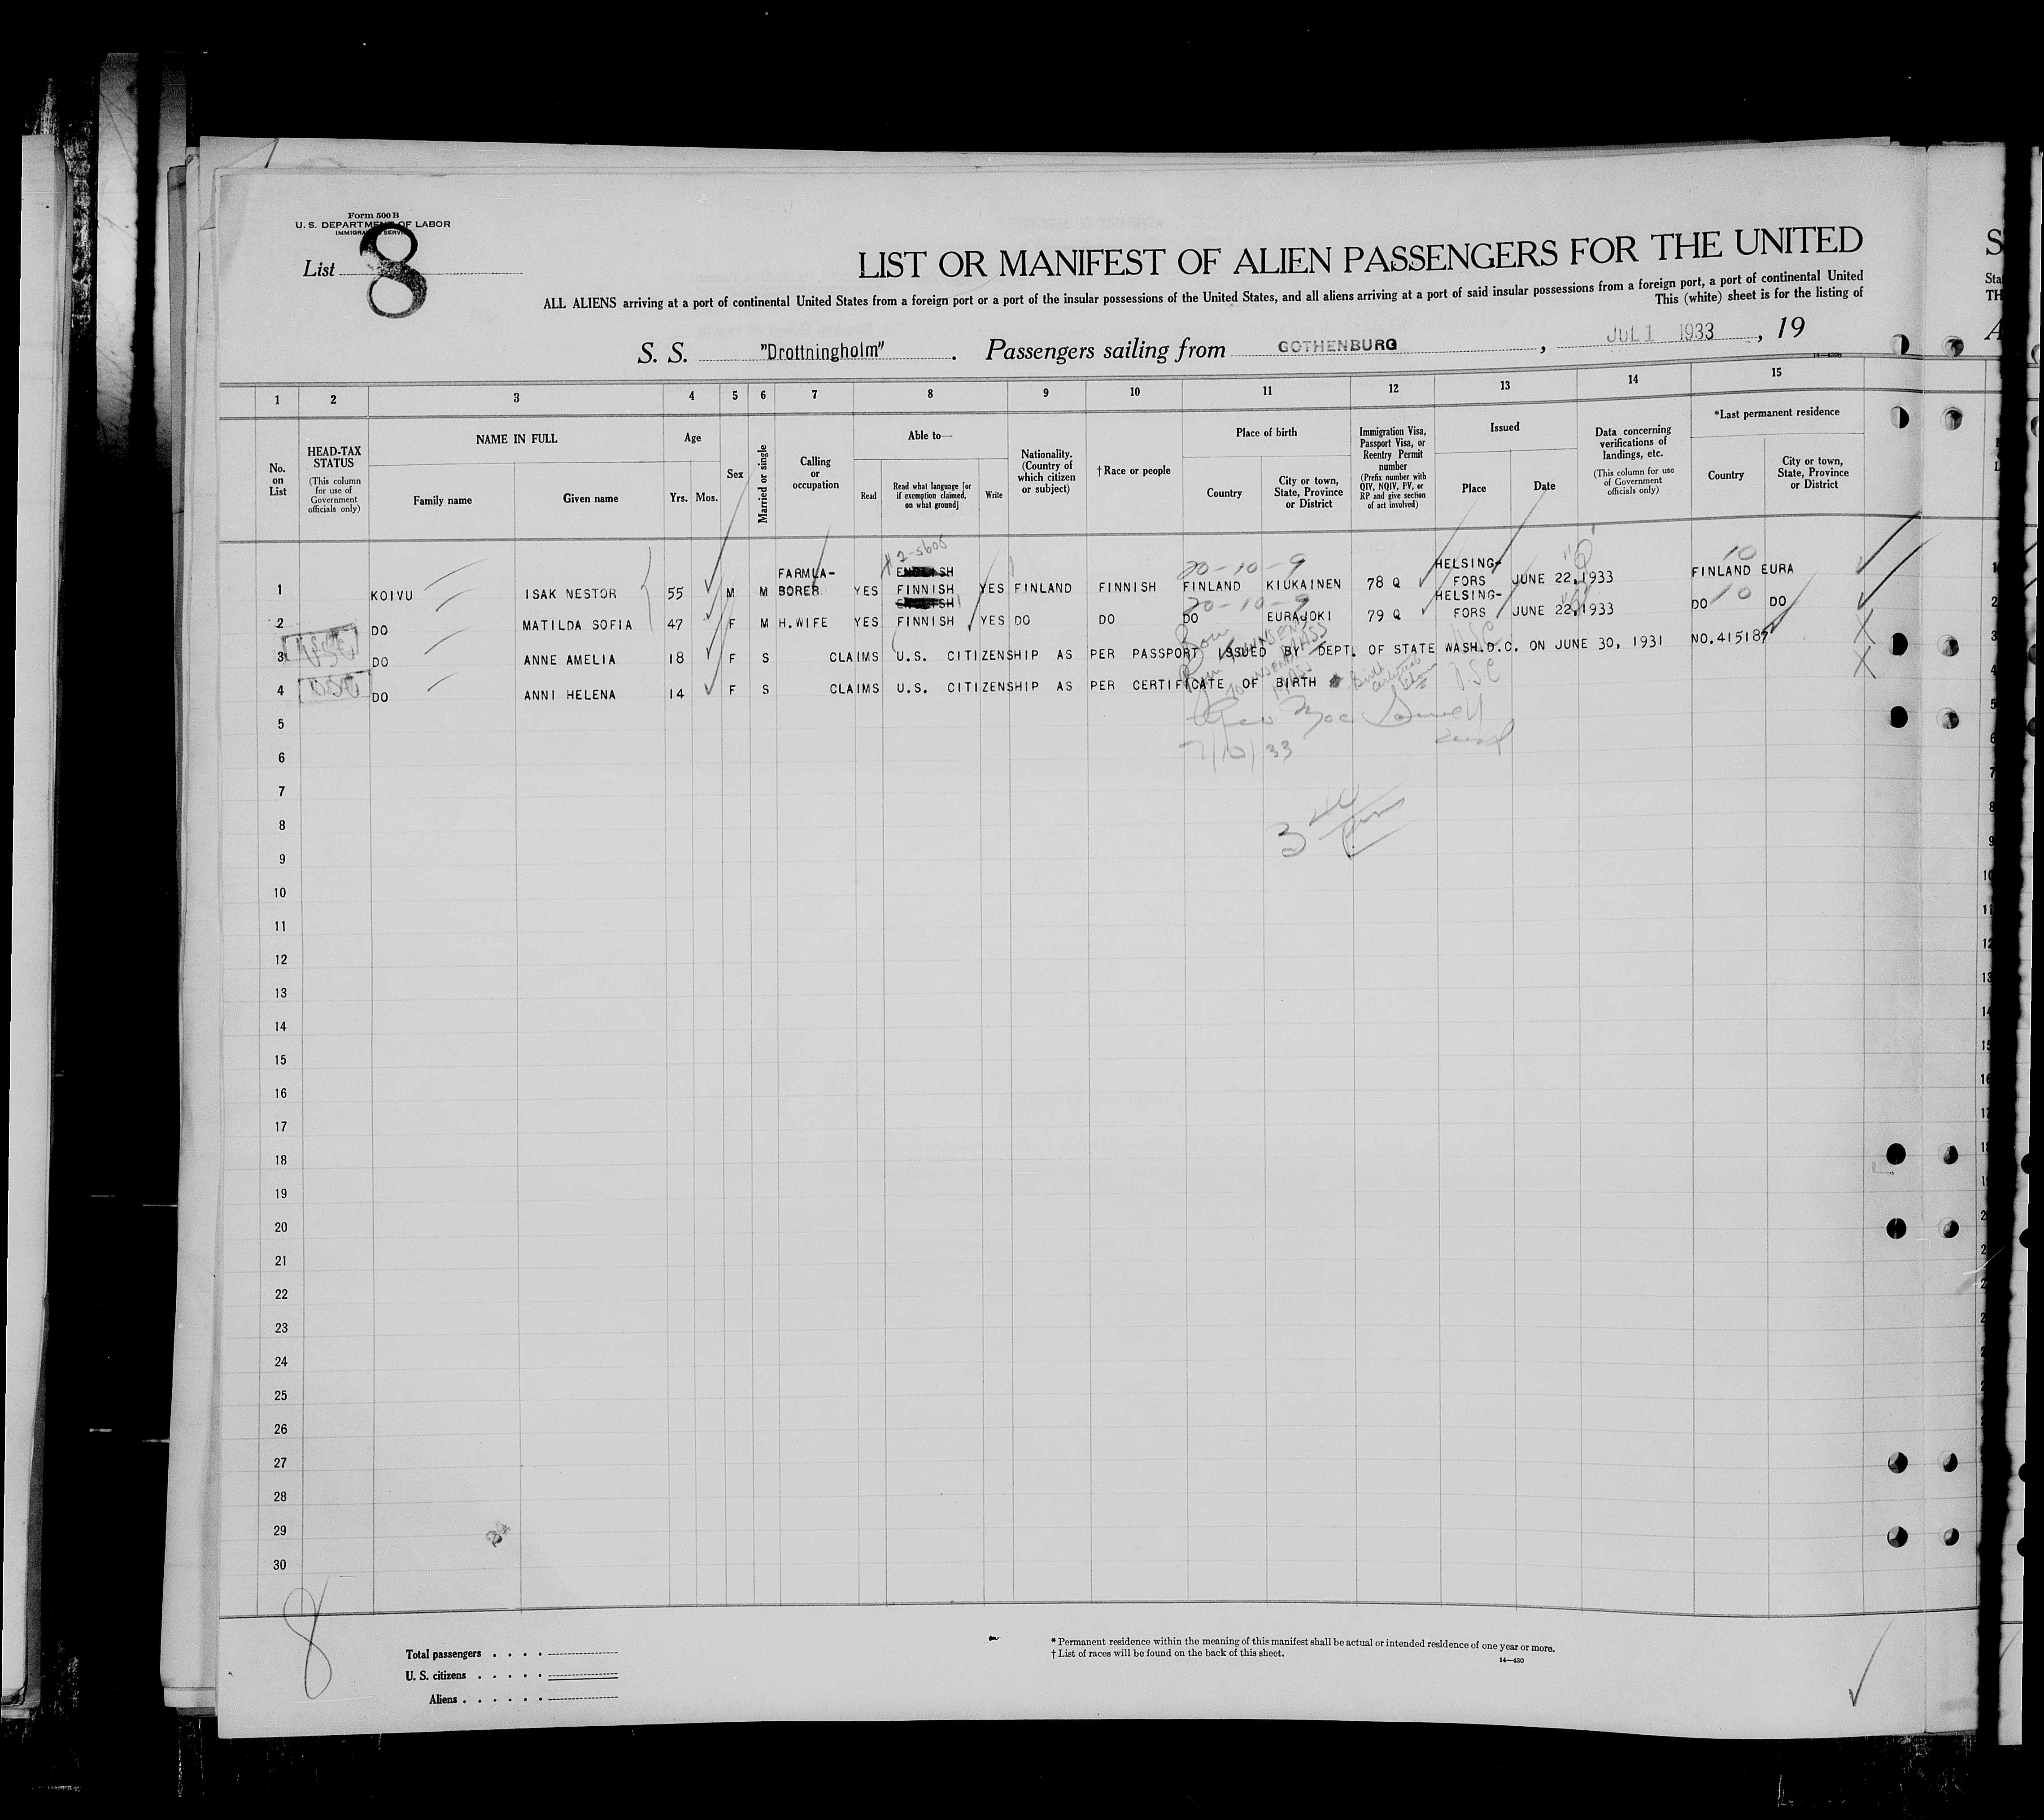 Form 500 B
U. S. DEPARTMENT OF LABOR
IMMIGRATION SERVICE
List 8
LIST OR MANIFEST OF ALIEN PASSENGERS FOR THE UNITED
ALL ALIENS arriving at a port of continental United States from a foreign port or a port of the insular possessions of the United States, and all aliens arriving at a port of said insular possessions from a foreign port, a port of continental United
This (white) sheet is for the listing of
S. S. "Drottningholm" . Passengers sailing from GOTHENBURG , JUL 1 1933 , 19
14—430B
1 2 3 4 5 6 7 8 9 10 11 12 13 14 15
No. on List
HEAD-TAX STATUS (This column for use of Government officials only)
NAME IN FULL
Family name Given name
Age
Yrs. Mos.
Sex
Married or single
Calling or occupation
Able to—
Read
Read what language [or if exemption claimed, on what ground]
Write
Nationality. (Country of which citizen or subject)
†Race or people
Place of birth
Country
City or town, State, Province or District
Immigration Visa, Passport Visa, or Reentry Permit number (Prefix number with QIV, NQIV, PV, or RP and give section of act involved)
Issued
Place Date
Data concerning verifications of landings, etc. (This column for use of Government officials only)
*Last permanent residence
Country
City or town, State, Province or District
X 2-5605
20-10-9
10
1 KOIVU ISAK NESTOR 55 M M FARMLA-BORER YES ENGLISH FINNISH YES FINLAND FINNISH FINLAND KIUKAINEN 78 Q HELSING-FORS JUNE 22,1933 FINLAND EURA
20-10-9
10
2 DO MATILDA SOFIA 47 F M H.WIFE YES ENGLISH FINNISH YES DO DO DO EURAJOKI 79 Q HELSING-FORS JUNE 22,1933 DO DO
3 USC DO ANNE AMELIA 18 F S CLAIMS U.S. CITIZENSHIP AS PER PASSPORT ISSUED BY DEPT. OF STATE WASH.D.C. ON JUNE 30, 1931 NO.415187
Born TOWNSEND MASS
USC
4 USC DO ANNI HELENA 14 F S CLAIMS U.S. CITIZENSHIP AS PER CERTIFICATE OF BIRTH
Born TOWNSEND MASS
Birth certificate
USC
5
6
7/10/33
7
8
3
9
10
11
12
13
14
15
16
17
18
19
20
21
22
23
24
25
26
27
28
29
30
8
Total passengers
U. S. citizens
Aliens
* Permanent residence within the meaning of this manifest shall be actual or intended residence of one year or more.
† List of races will be found on the back of this sheet.
14—430